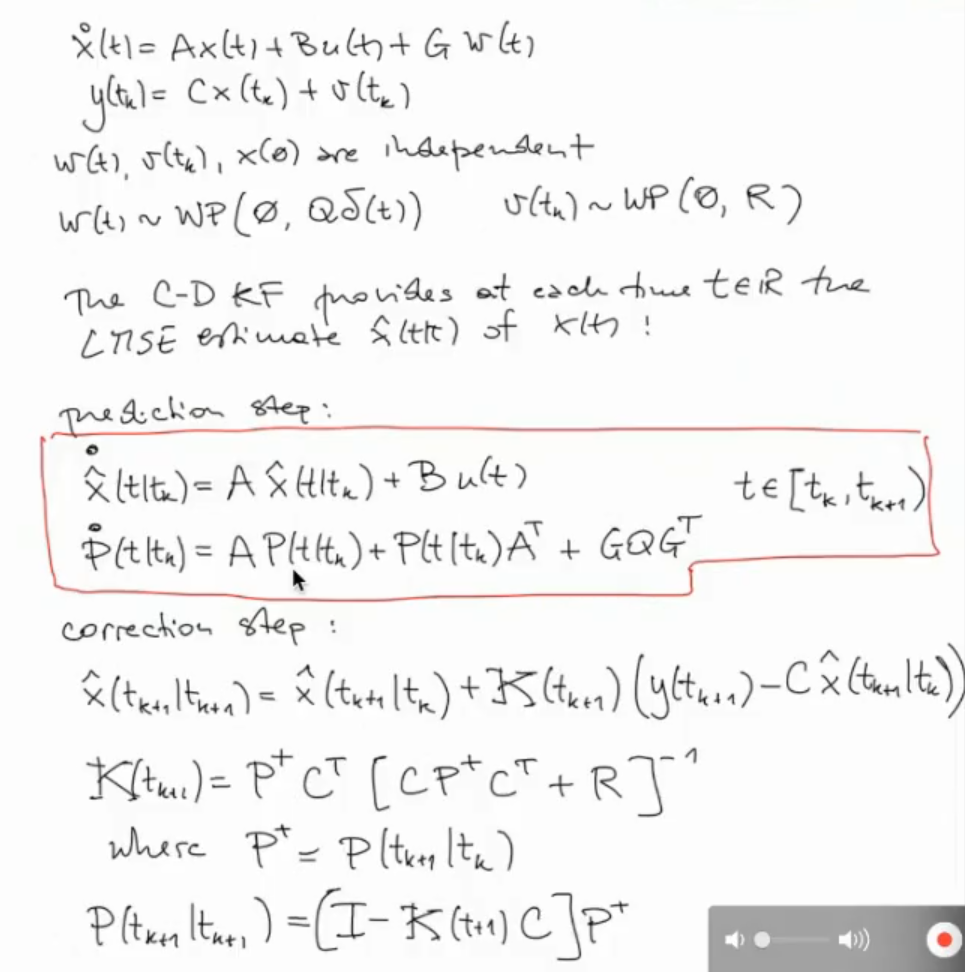 ẋ(t) = Ax(t) + Bu(t) + G w(t)
y(tₖ) = Cx(tₖ) + v(tₖ)
w(t), v(tₖ), x(∅) are independent
w(t) ~ WP(∅, Qδ(t))    v(tₖ) ~ WP(∅, R)
The C-D KF provides at each time t∈ℝ the
LMSE estimate x̂(t|t) of x(t) !
prediction step :
x̂̇(t|tₖ) = A x̂(t|tₖ) + B u(t)    t ∈ [tₖ, tₖ₊₁)
Ṗ(t|tₖ) = A P(t|tₖ) + P(t|tₖ)Aᵀ + GQGᵀ
correction step :
x̂(tₖ₊₁|tₖ₊₁) = x̂(tₖ₊₁|tₖ) + K(tₖ₊₁) (y(tₖ₊₁) − C x̂(tₖ₊₁|tₖ))
K(tₖ₊₁) = P⁺ Cᵀ [C P⁺ Cᵀ + R]⁻¹
where P⁺ = P(tₖ₊₁|tₖ)
P(tₖ₊₁|tₖ₊₁) = [I − K(t+1) C] P⁺